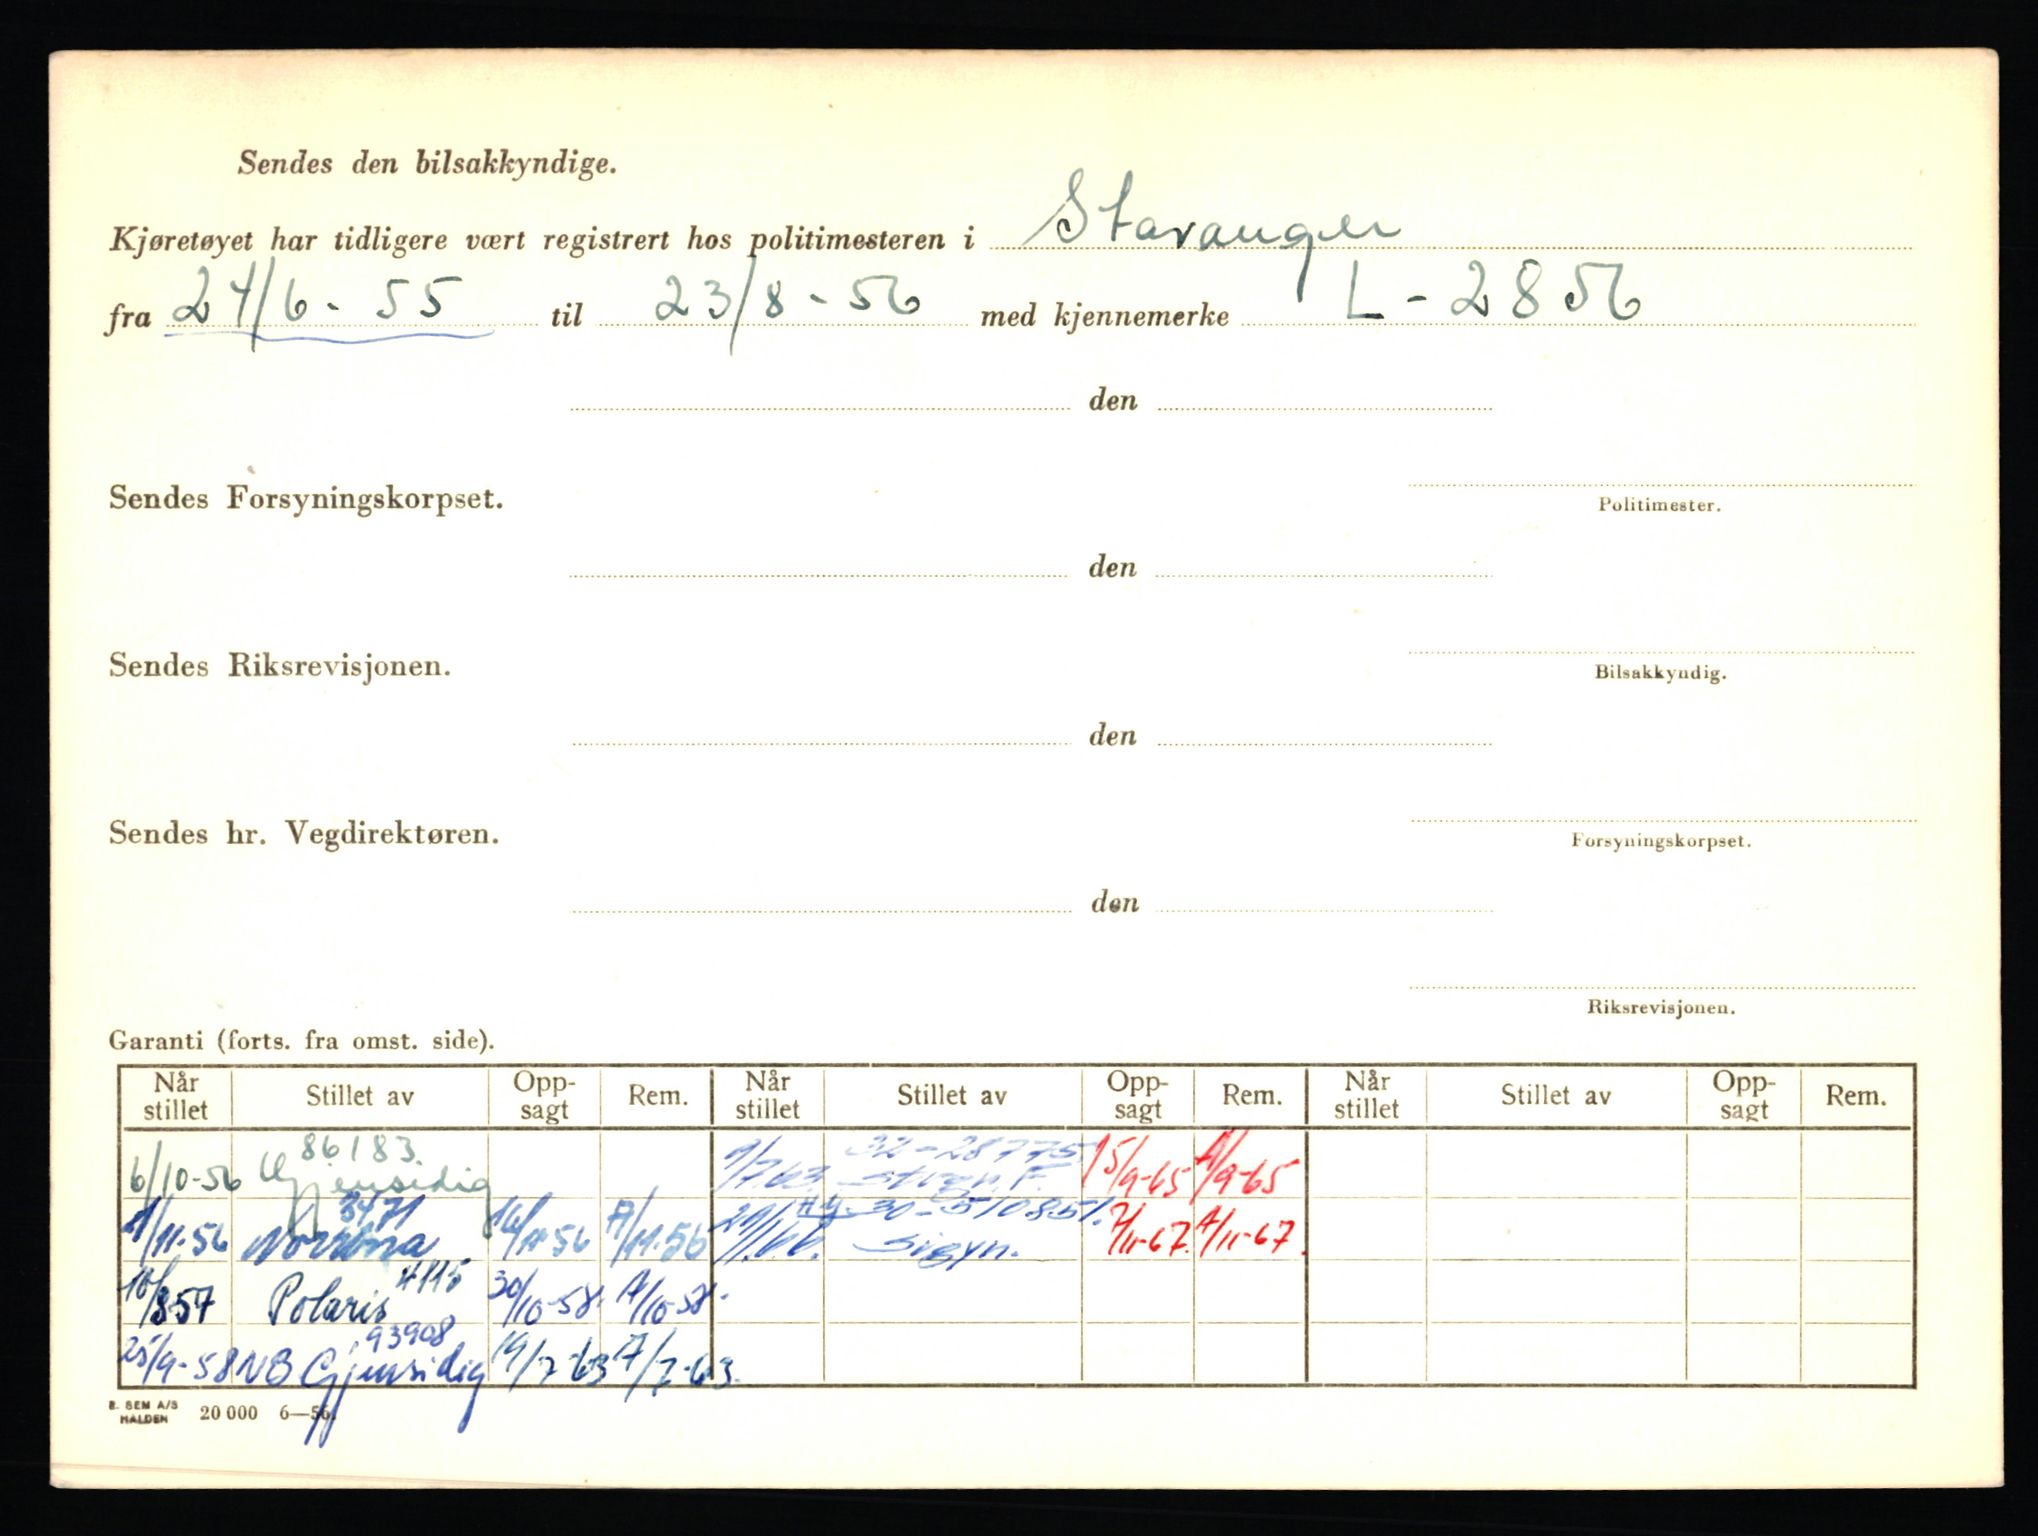 Sendes den bilsakkyndige.
Kjøretøyet har tidligere vært registrert hos politimesteren i Stavanger
fra 24/6 - 55 til 23/8 - 56 med kjennemerke L - 2856
den
Politimester.
Sendes Forsyningskorpset.
den
Bilsakkyndig.
Sendes Riksrevisjonen.
den
Forsyningskorpset.
Sendes hr. Vegdirektøren.
den
Riksrevisjonen.
Garanti (forts. fra omst. side).
Når stillet Stillet av Opp-sagt Rem. Når stillet Stillet av Opp-sagt Rem. Når stillet Stillet av Opp-sagt Rem.
86183 32-28775
6/10-56 Gjensidig /7.63 F. 15/9-65 A/9-65
3471 30-510851.
/11-56 Norrøna 16/11-56 A/11-56 Sigyn. 7/11-67. A/11-67.
4115
16/857 Polaris 30/10-58. A/10-58.
93908
25/9-58 NB Gjensidig 19/7-63 A/7-63.
E. SEM A/S
HALDEN 20 000 6—56.